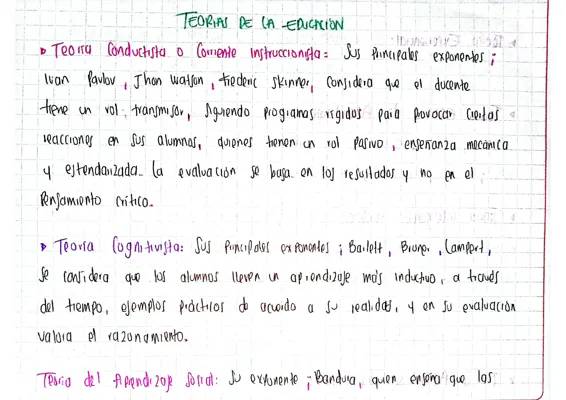 TEORIAS DE LA EDUCACION
Teoria Conductista o Corriente Instruccionista: Sus Principales exponentes;
Ivan Pavlov, Jhon Watson, frederic skinner, Considera que el docente
tiene un rol transmisor, siguiendo programas rigidos para provocar Ciertas
reacciones en sus alumnos, quienes tienen un rol Pasivo, enseñanza mecanica
y estandarizada. La evaluación se basa en los resultados y no en el
Pensamiento Critico.
Teoria Cognitivista: Sus Principales exponentes; Barlett, Bruner, Lampert,
se considera que los alumnos lleven un aprendizaje más inductivo, a través
del tiempo, ejemplos prácticos de acuerdo a su realidad, y en su evaluación
valora el razonamiento.
Teoria del Aprendizaje Social: Su exponente; Bandura, quien enseña que las